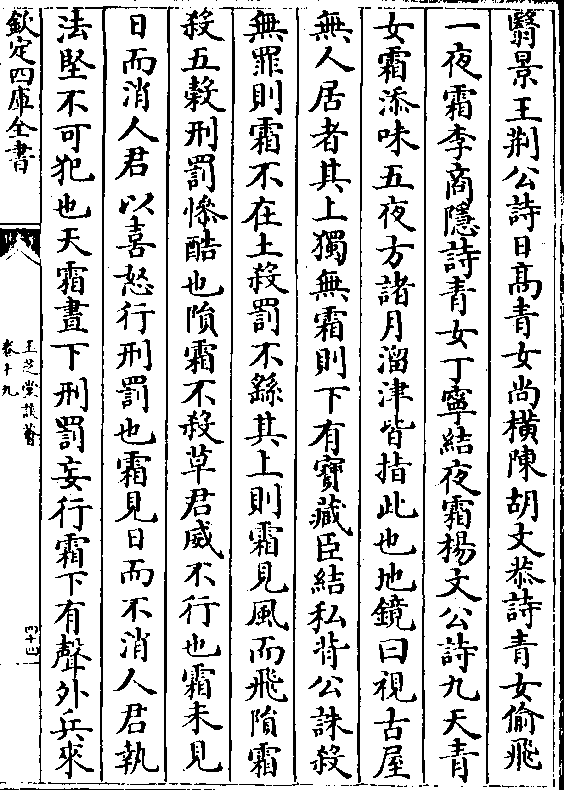 翳景王荆公詩日髙青女尚横陳胡文恭詩青女偷飛
一夜霜李商隱詩青女丁寧結夜霜楊文公詩九天青
女霜添味五夜方諸月溜津皆指此也地鏡曰視古屋
無人居者其上獨無霜則下有寶藏臣結私背公誅殺
無罪則霜不在土殺罰不繇其上則霜見風而飛隕霜
殺五榖刑罰慘酷也隕霜不殺草君威不行也霜未見
日而消人君以喜怒行刑罰也霜見日而不消人君執
法堅不可犯也天霜晝下刑罰妄行霜下有聲外兵來
欽定四庫全書
玉芝堂談薈
卷十九
四十四